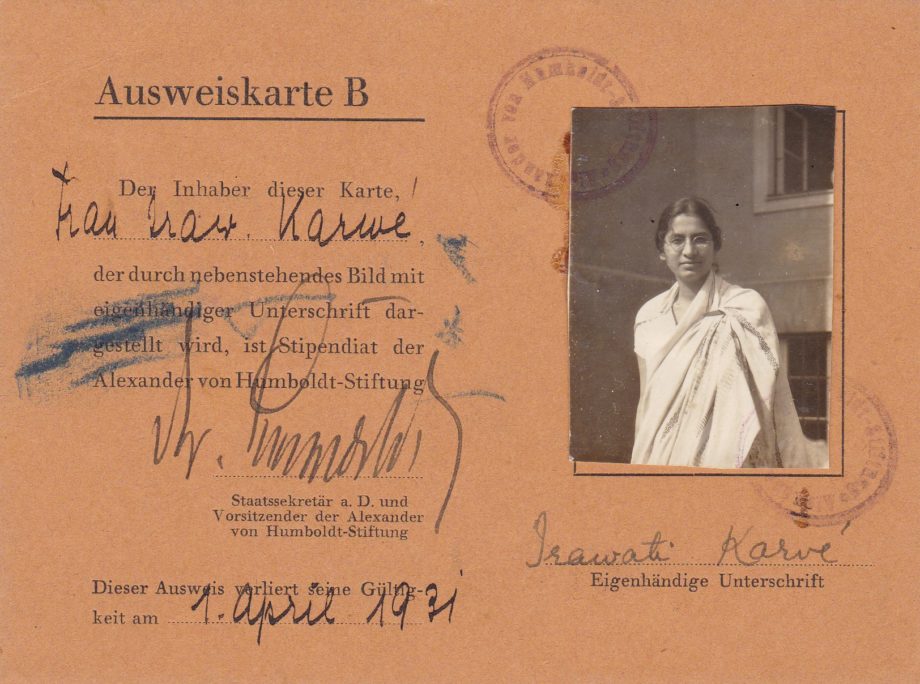 Ausweiskarte B
Der Inhaber dieser Karte,
Frau Iraw. Karwé,
der durch nebenstehendes Bild mit
eigenhändiger Unterschrift dar-
gestellt wird, ist Stipendiat der
Alexander von Humboldt-Stiftung
Staatssekretär a. D. und
Vorsitzender der Alexander
von Humboldt-Stiftung
Dieser Ausweis verliert seine Gültig-
keit am 1. April 1931
Irawati Karvé
Eigenhändige Unterschrift